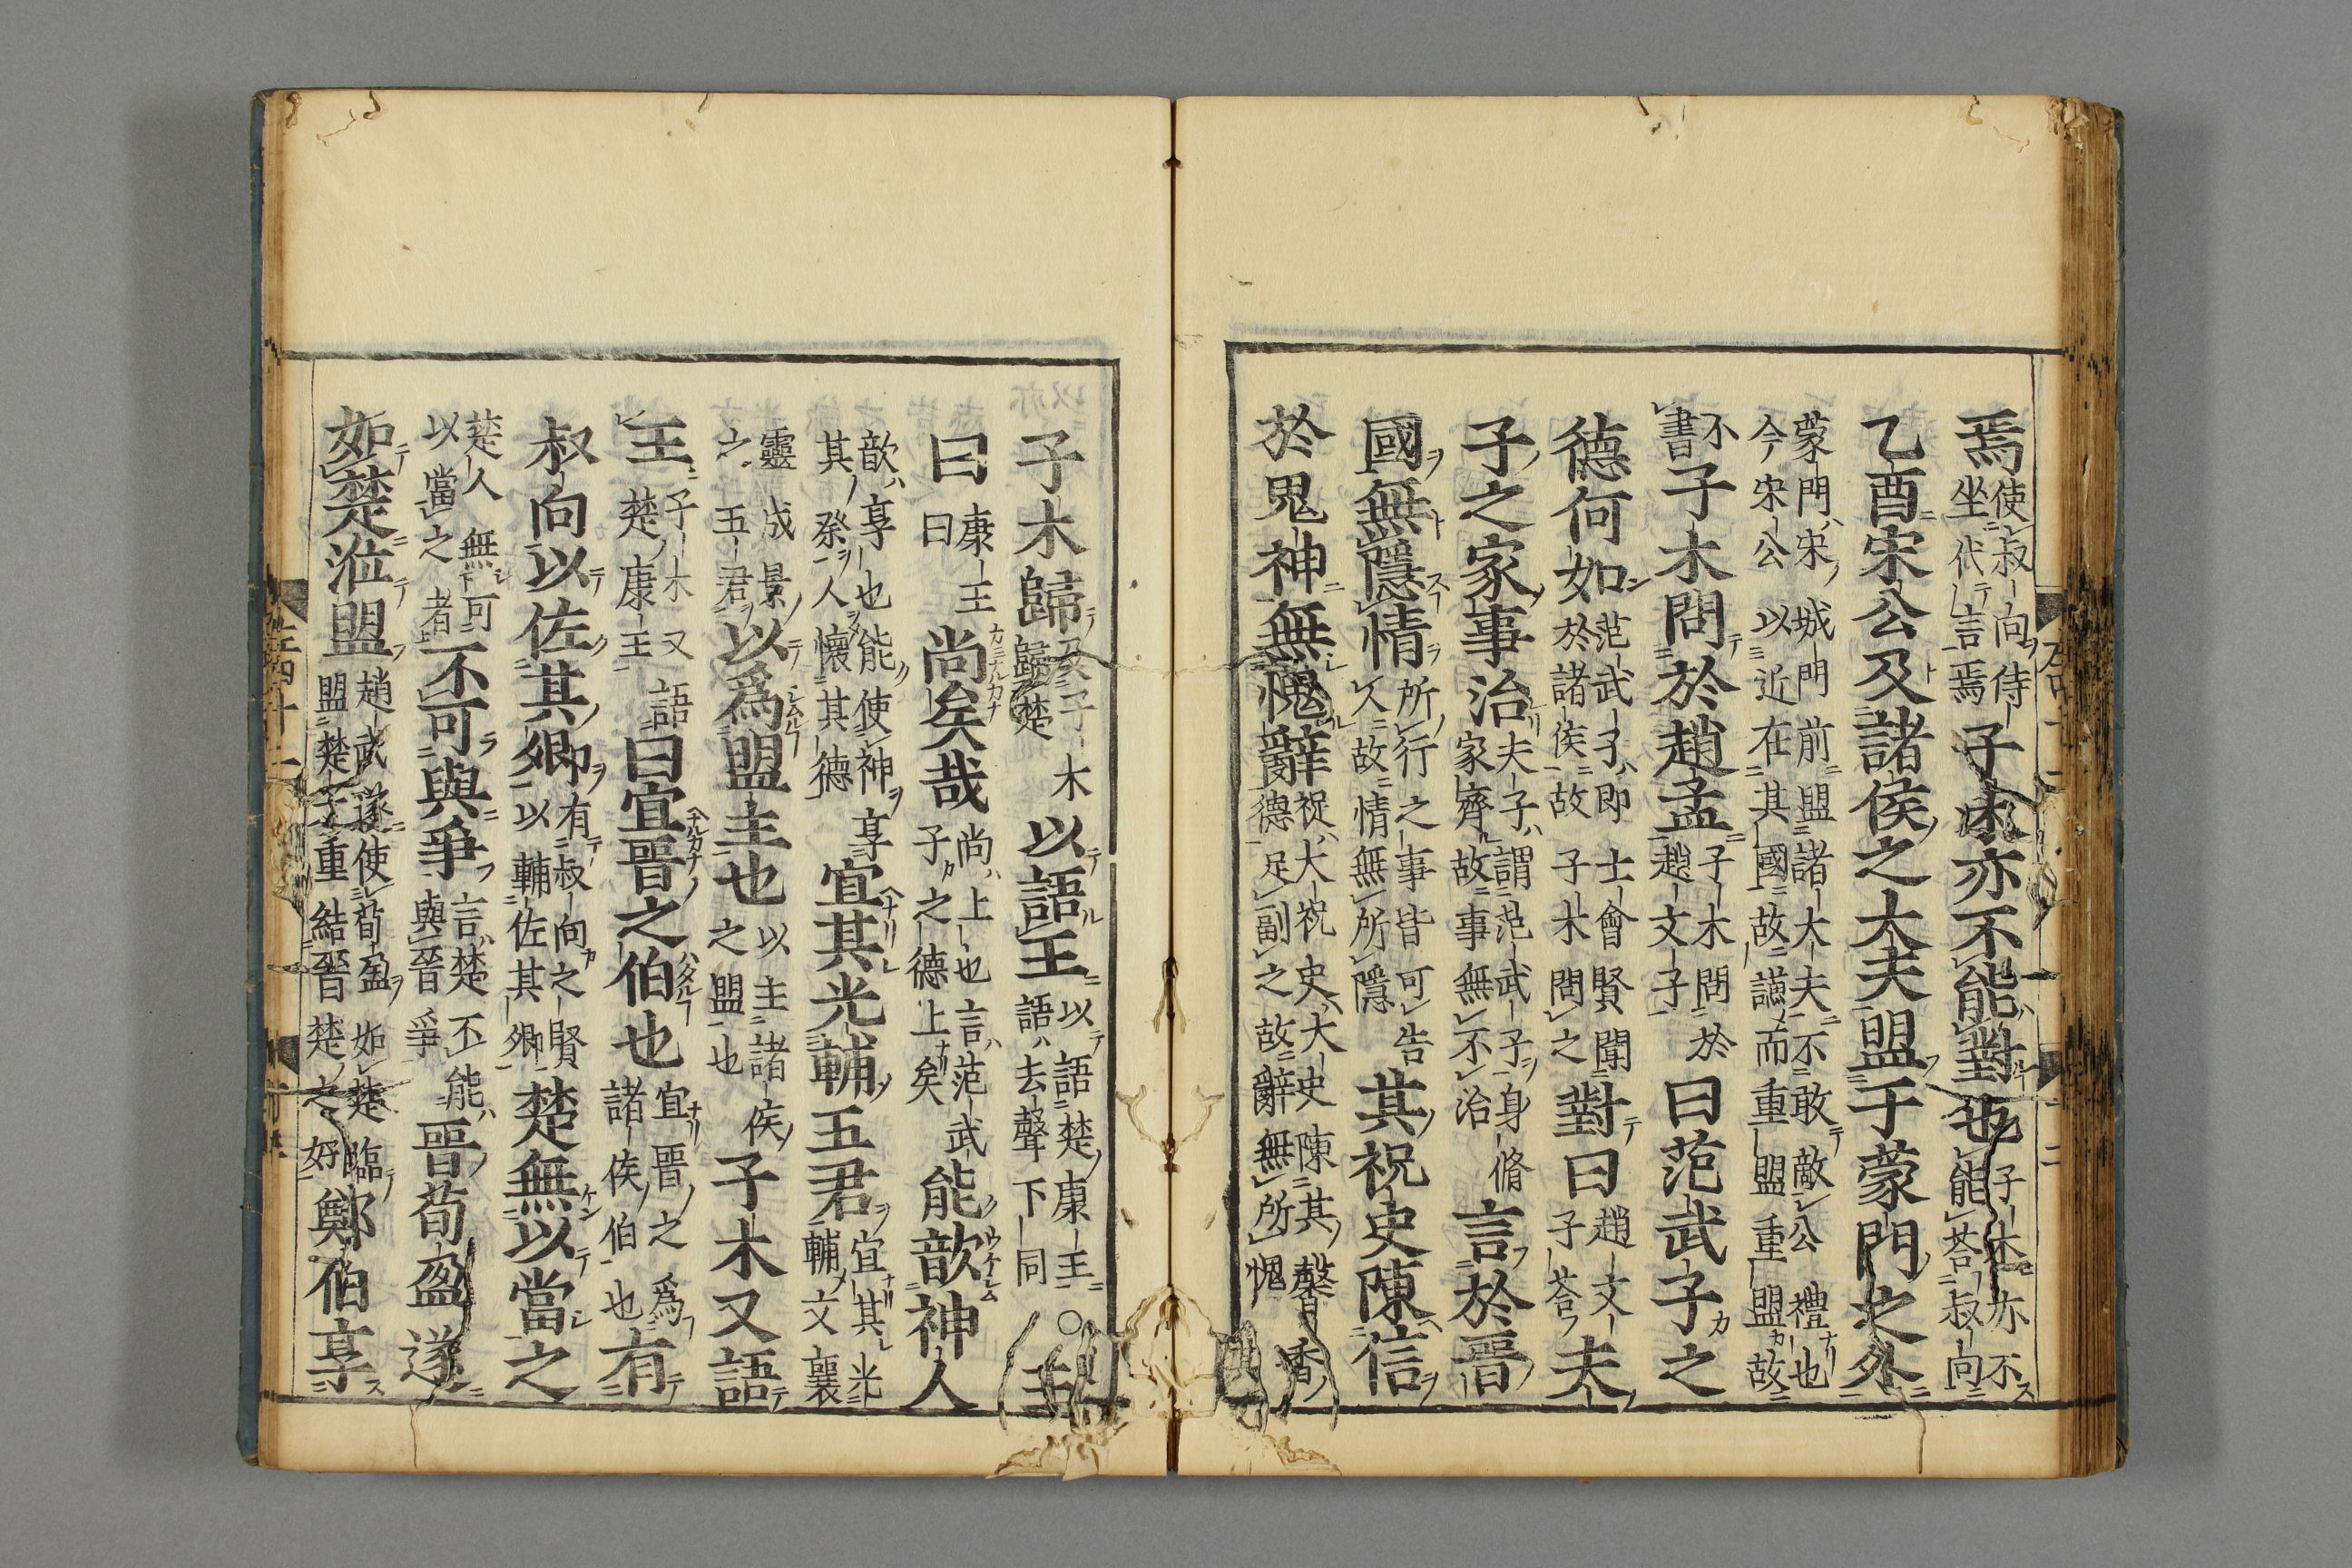 焉使叔向侍坐代言焉子木亦不能對也子木亦不能荅叔向
乙酉宋公及諸侯之大夫盟于蒙門之外
蒙門宋城門前盟諸大夫不敢敵公禮也今宋公以近在其國故謙而重盟重盟故
不書子木問於趙孟子木問於趙文子曰范武子之
德何如范武子即士會賢聞於諸侯故子木問之對曰趙文子荅夫
子之家事治夫子謂范武子身脩家齊故事無不治言於晉
國無隱情所行之事皆可告人故情無所隱其祝史陳信
於鬼神無愧辭祝大祝史大史陳其馨香德足副之故辭無所愧
子木歸及子木歸楚以語王以語楚康王語去聲下同○王
曰康王曰尚矣哉尚上也言范武子之德上矣能歆神人
歆享也能使神享其祭人懷其德宜其光輔五君宜其光輔文襄
靈成景之五君以爲盟主也以主諸侯之盟也子木又語
王子木又語楚康王曰宜晉之伯也宜晉之爲諸侯伯也有
叔向以佐其卿有叔向之賢以輔佐其卿楚無以當之
楚人無可以當之者不可與爭言楚不能與晉爭晉荀盈遂
如楚涖盟趙武遂使荀盈如楚臨盟楚子重結晉楚之好鄭伯享